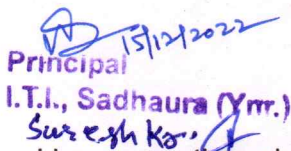 15/12/2022
Principal
I.T.I., Sadhaura (Ynr.)
Suresh Kr.